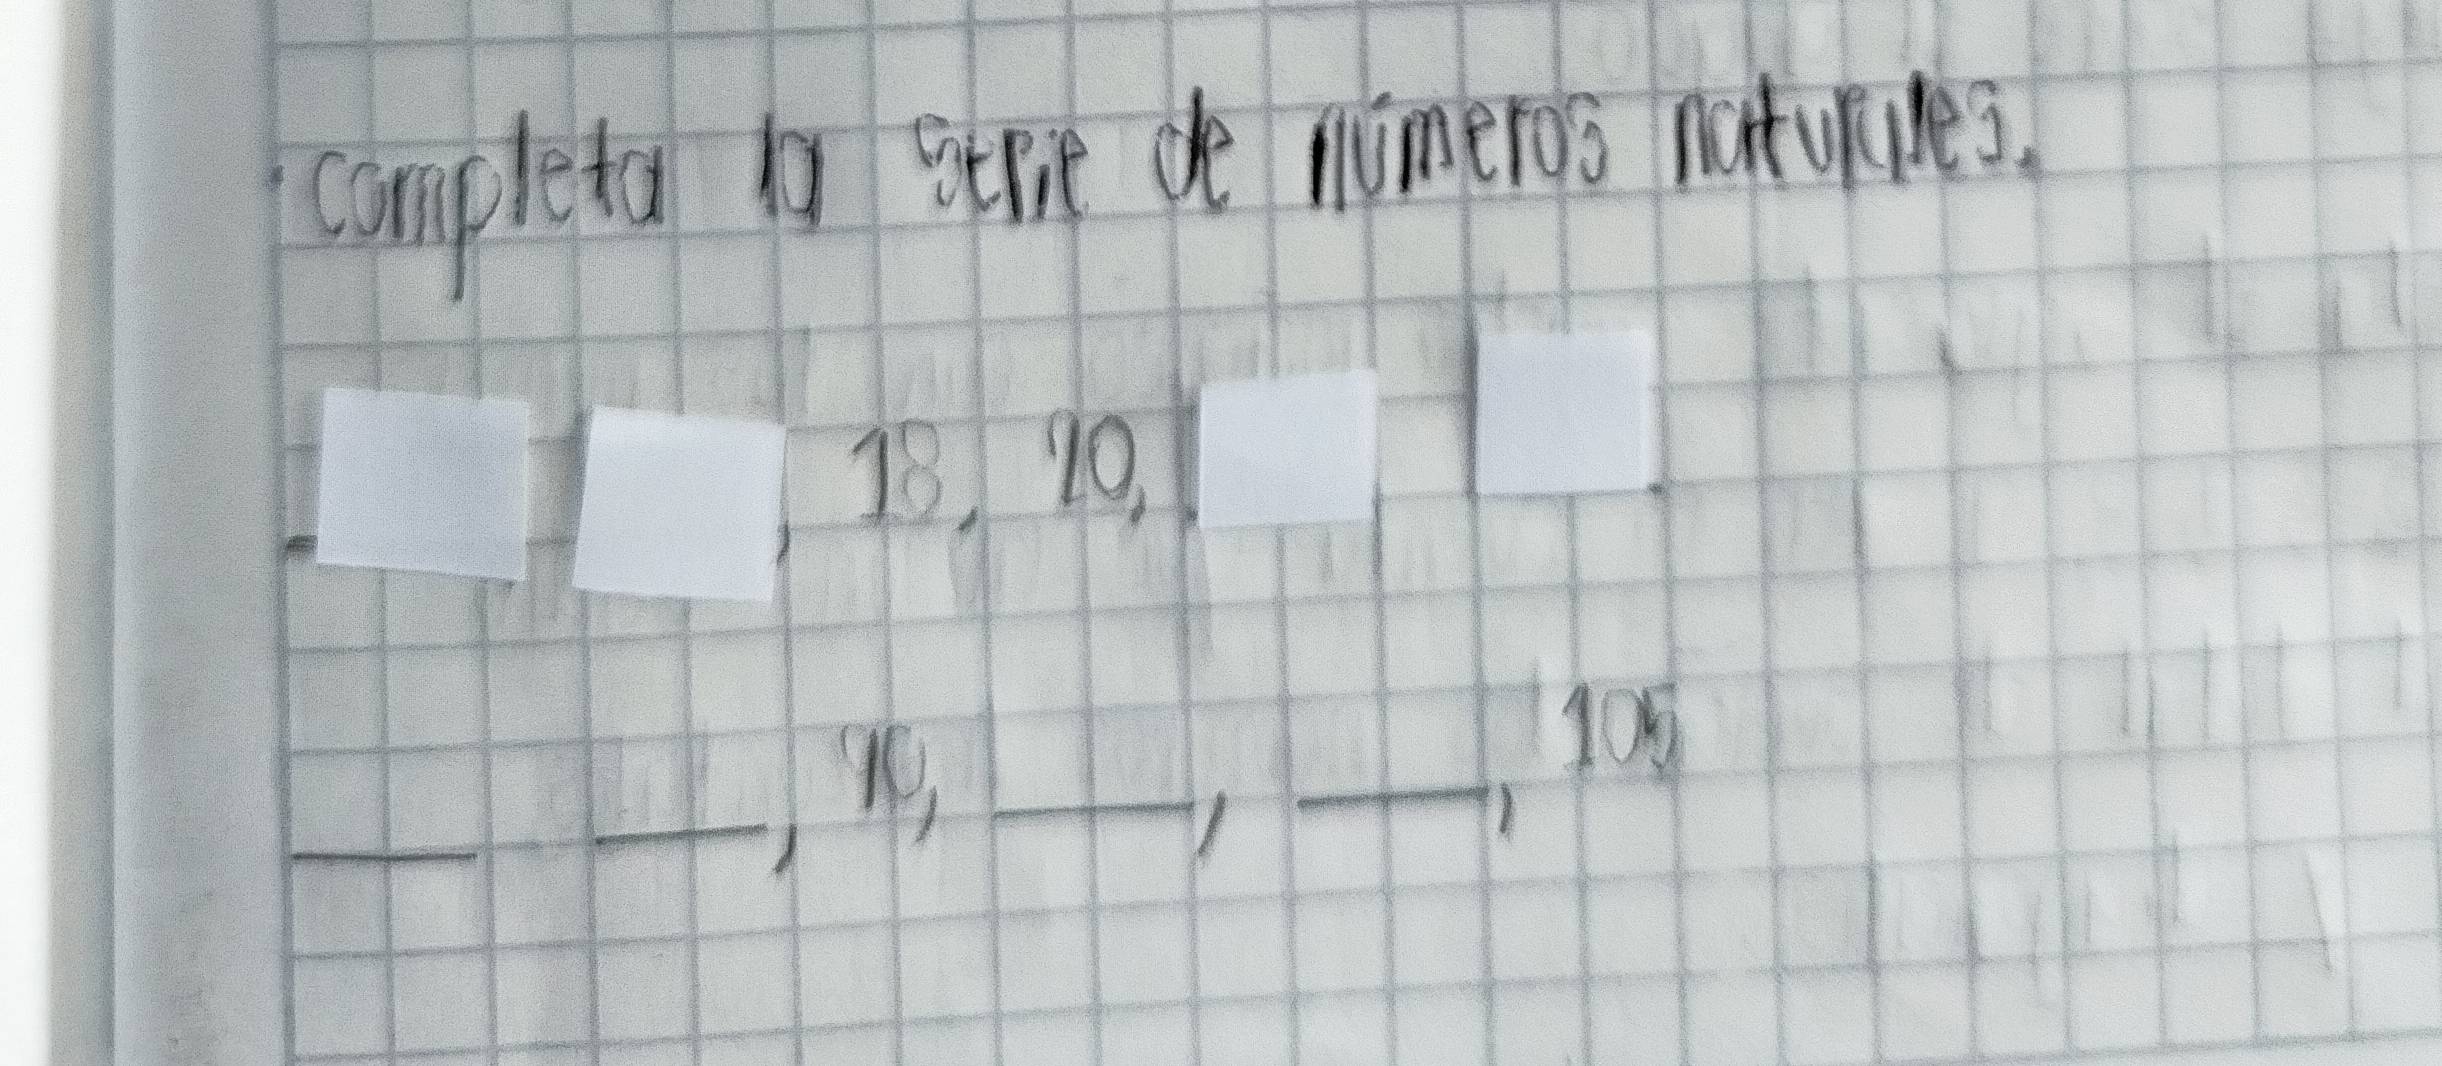 completa la serie de números naturales.
18, 20,
____ ____, 90, ____, ____, 105